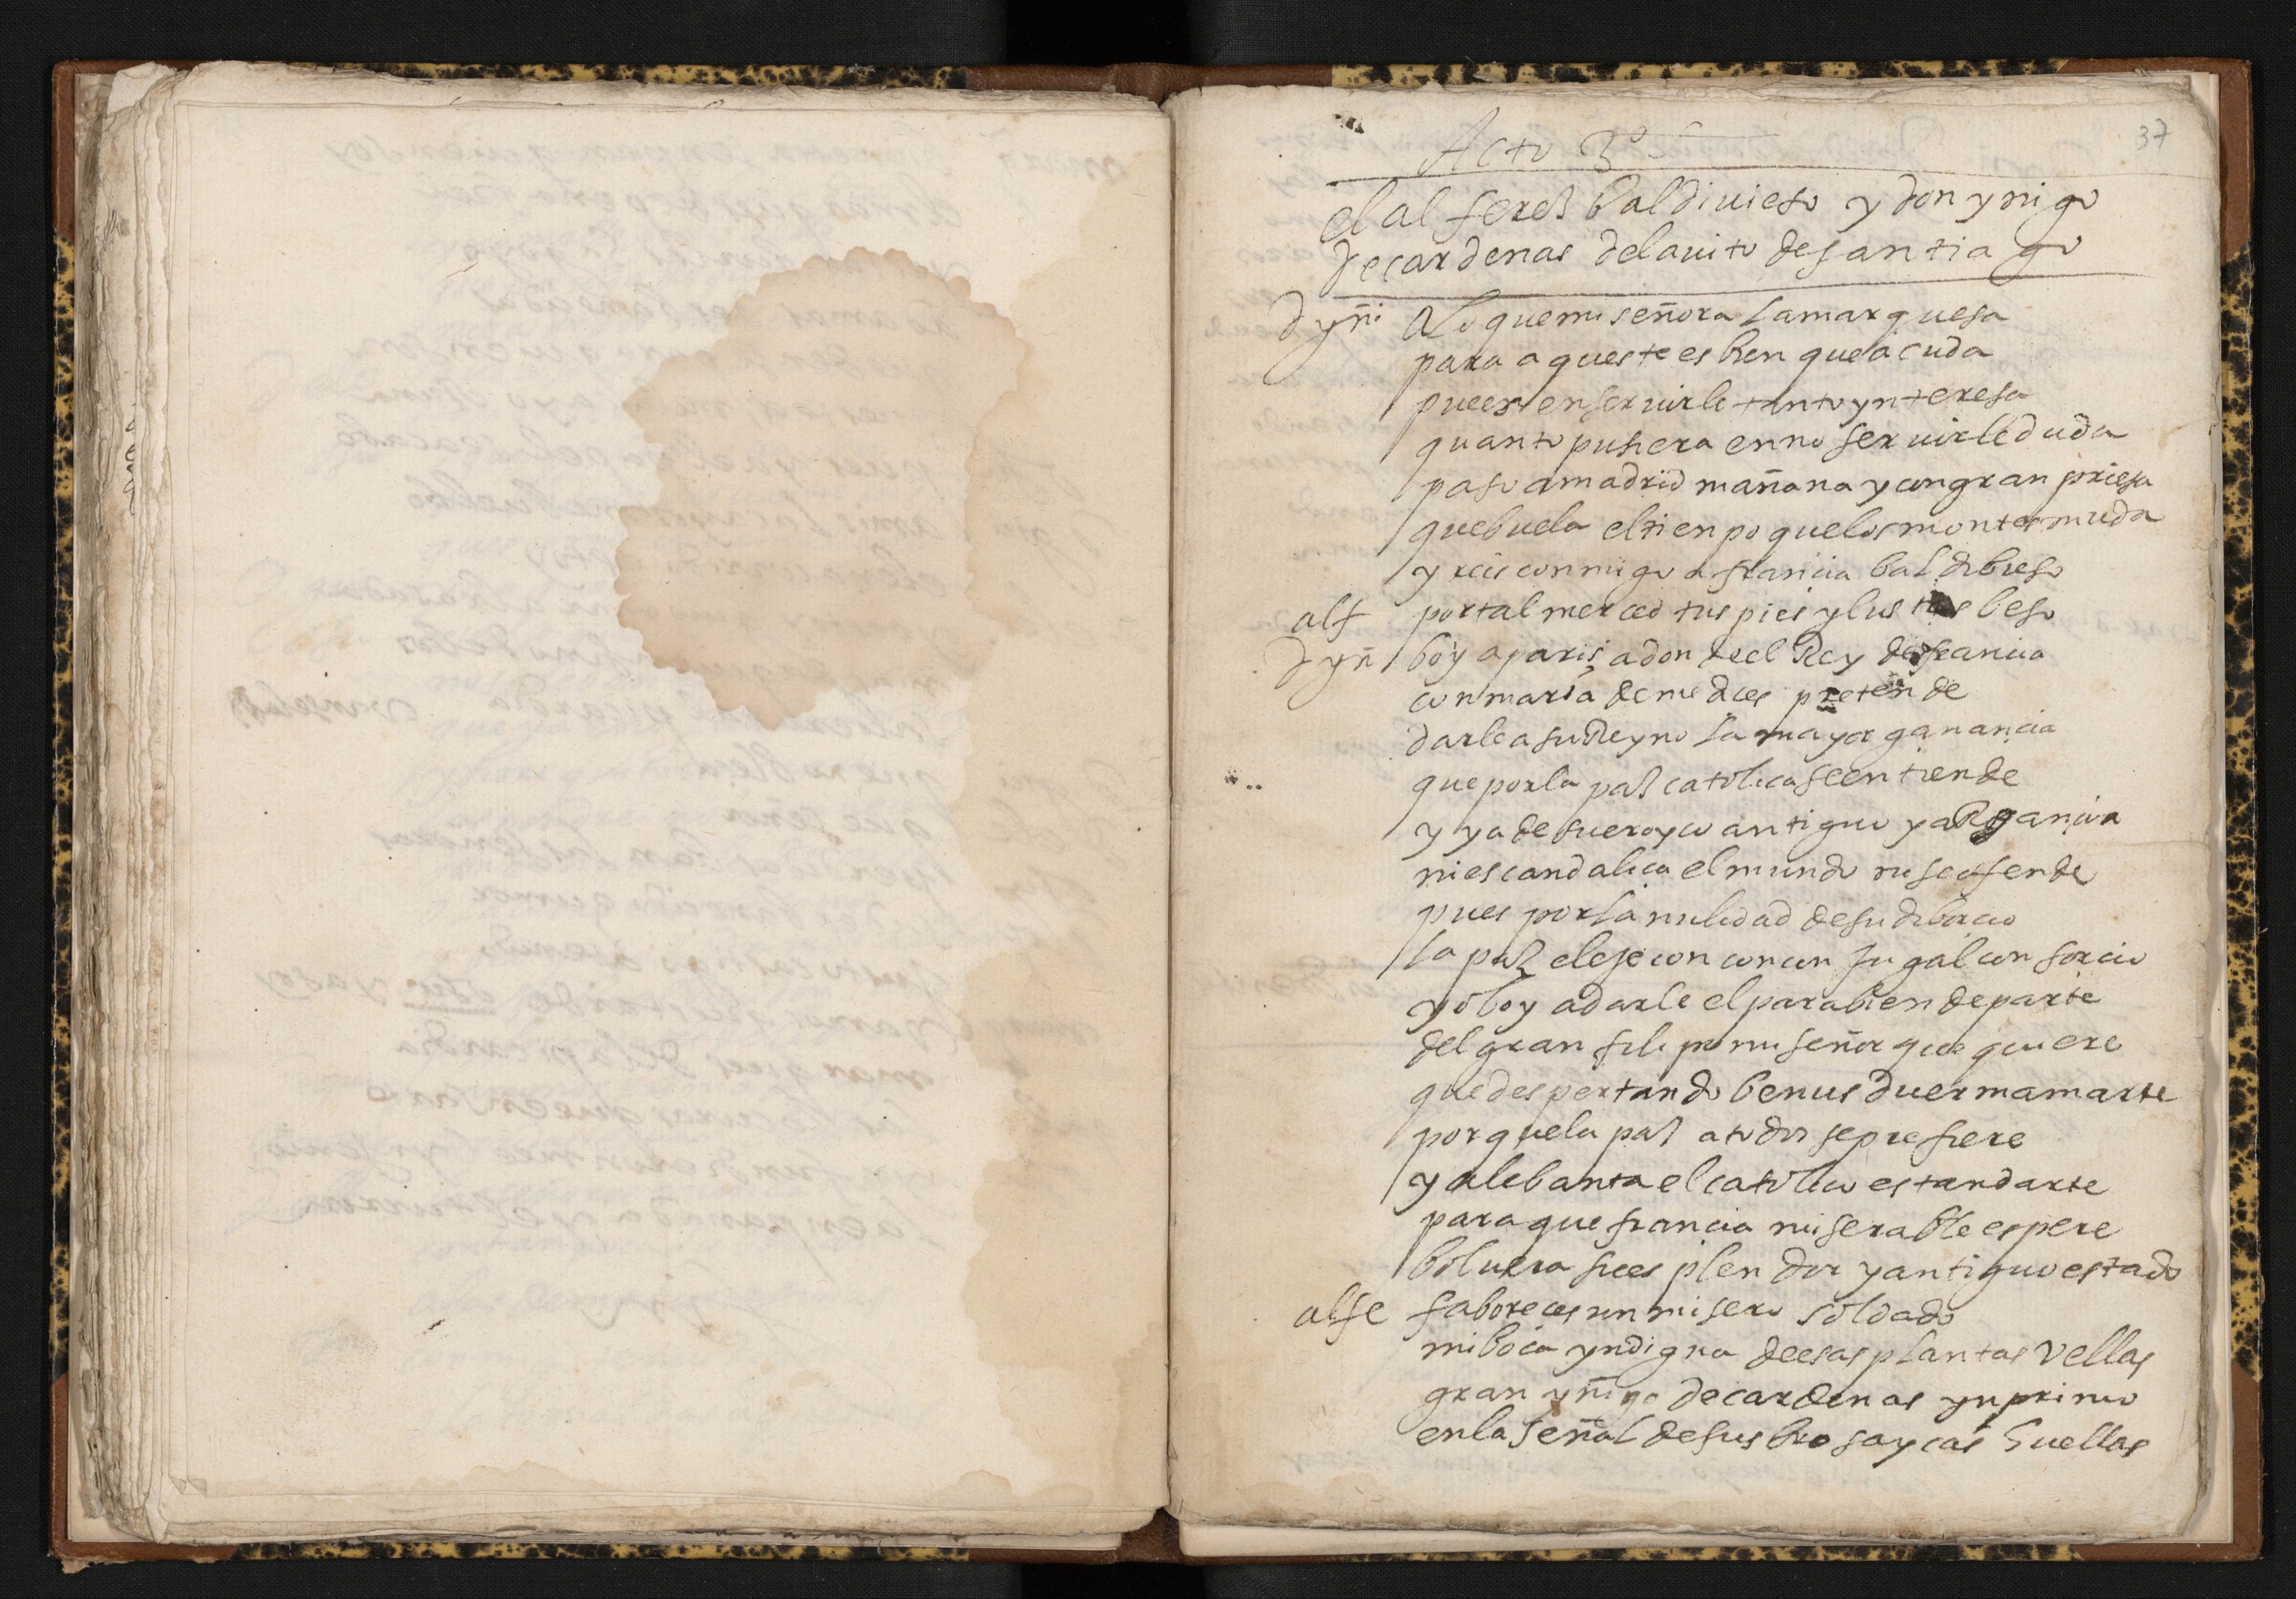 37
Acto 3º
el alferez baldiuieso y don ynigo
de cardenas del auito de santiago
d yñi a lo que mi señora la marquesa
para aqueste es bien que acuda
pues en seruirle tanto ynteresa
quanto pusiera en no seruirle duda
paso a madrid mañana y con gran priesa
que buela el tienpo que los montes muda
y reis conmigo a francia baldibieso
alf por tal merced tus pies ylustres beso
d yñ boy a paris adonde el Rey de francia
con maria de medices pretende
darle a su Reyno la mayor ganancia
que por la paz catolica se entiende
y ya de su eroyco antiguo y aRogancia
ni escandalica el mundo ni se ofende
pues por la nulidad de su diborcio
la paz elije con conjugal consorcio
yo boy a darle el parabien de parte
del gran filipo mi señor que quiere
que despertando benus duerma marte
porque la paz a todos se prefiere
y alebanta el catolico estandarte
para que francia miserable espere
boluer a su esplendor y antiguo estado
alfe faboreces un misero soldado
mi boca yndigna de esas plantas vellas
gran yñigo de cardenas ynprimo
en la señal de sus
huellas